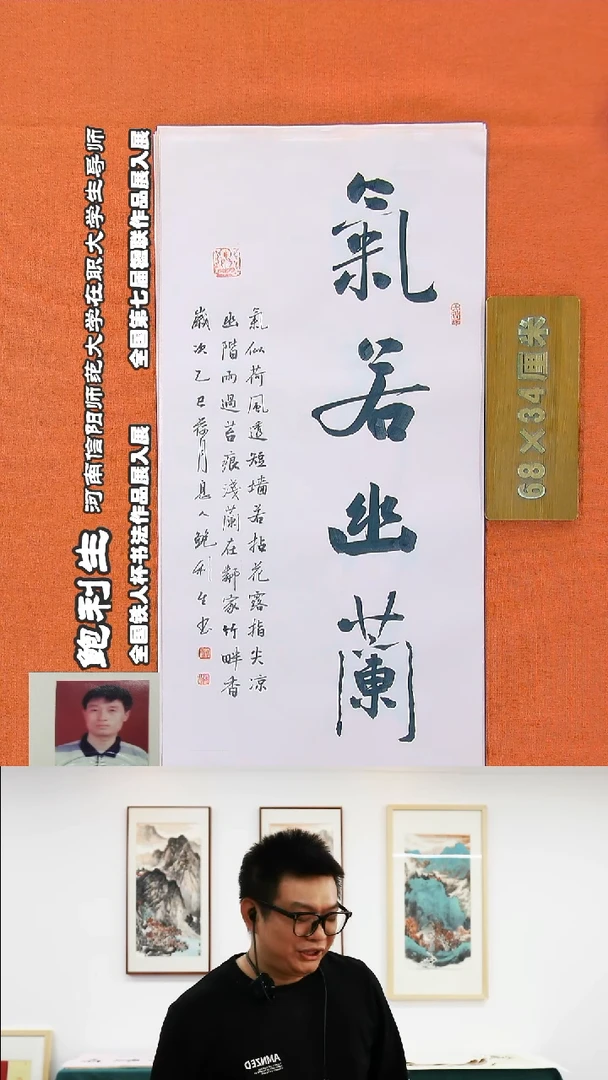 氣若幽蘭
氣似荷風透短墙若拈花露指尖凉
幽階雨過苔痕淺蘭在鄰家竹畔香
歲次乙巳月人鲍利生書
鲍利生 河南信阳师范大学在职大学生导师
全国铁人杯书法作品展入展 全国第七届楹联作品展入展
68×34厘米
AMNZED